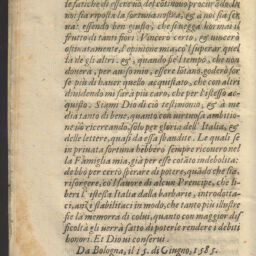 le fatiche di essere voi del cõtinovo procurãdo di
noi sia riposta la fortuna nostra, & a noi sia
essendo ben giusto, che si vegga hormai il
frutto di tanti fiori. Vincerò certo, & vincerò
ostinatamente, l'opinione mia, cõ'l superar quel
la de gli altri, &, quando sie'l tempo, che non
dovera, per an'si mio, essere lõtano, goderò for
se più di haver quello acquistato, che con altri
dividendo mi sarà più caro, che per l'istesso ac-
quisto. Siami Dio di ciò testimonio, & à me
dia tanto di bene, quanto con virtuosa ambitio-
ne vò ricercando, solo per gloria dell' Italia, &
delle lettere, quasi da essa bandite. Le quali se
in privata fortuna hebbero sempre ricovero nel
la Famiglia mia, già per esse cotãto indebolita:
debbo per certo sperare di potere, quãdo che sia,
risorgere, cõ'l favore di alcun Prencipe, che li-
beri l'istessa Italia dalla barbarie, introdotta-
ci, anzi stabilitaci in modo, che tanto più illustre
sie la memoria di colui, quanto con maggior dif
ficoltà gli verrà fatto di poterle rendere i debiti
honori. Et Dio vi conservi.
Da Bologna, il 15. di Giugno, 1585.